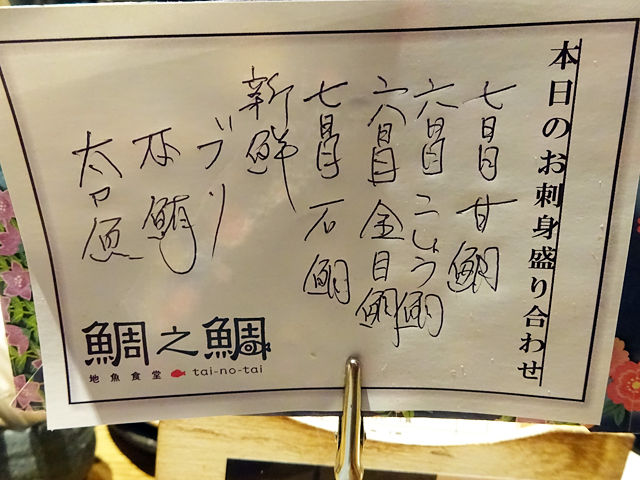 本日のお刺身盛り合わせ
七日目 甘鯛
六日目 こしょう鯛
六日目 金目鯛
七日目 石鯛
新鮮
ブリ
本鮪
太刀魚
鯛之鯛
地魚食堂 tai-no-tai